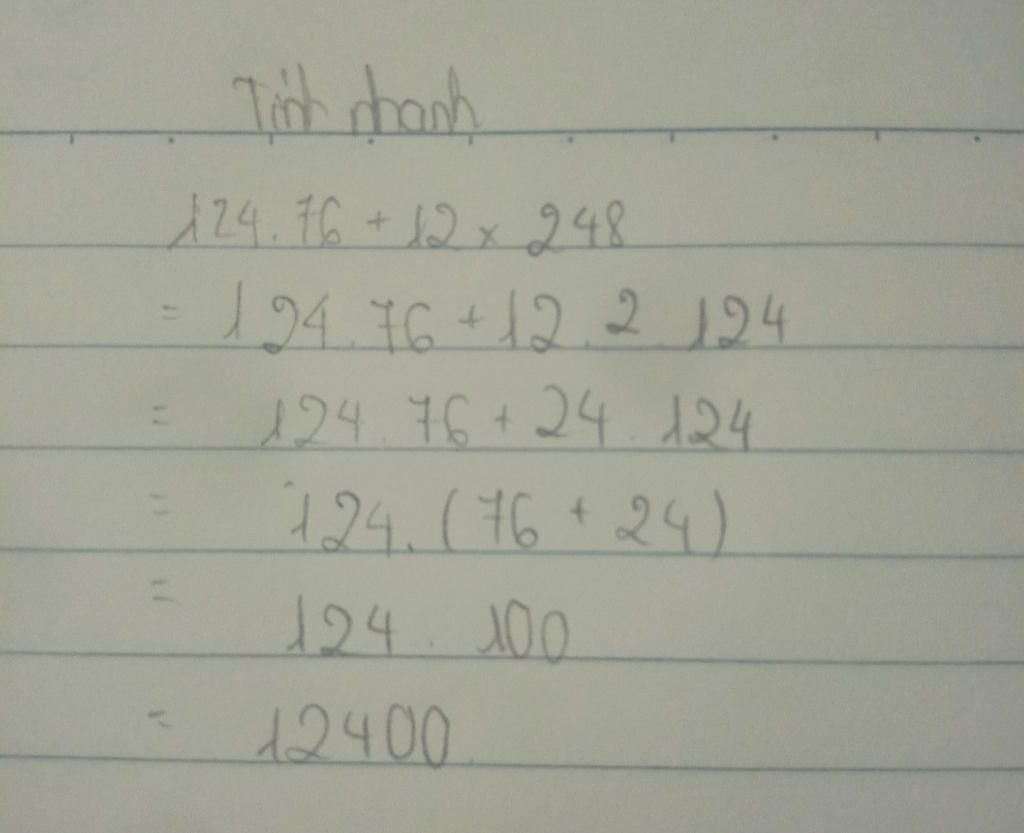 Tính nhanh
124.76 + 12 x 248
= 124.76 + 12.2.124
= 124.76 + 24.124
= 124.(76 + 24)
= 124.100
= 12400.